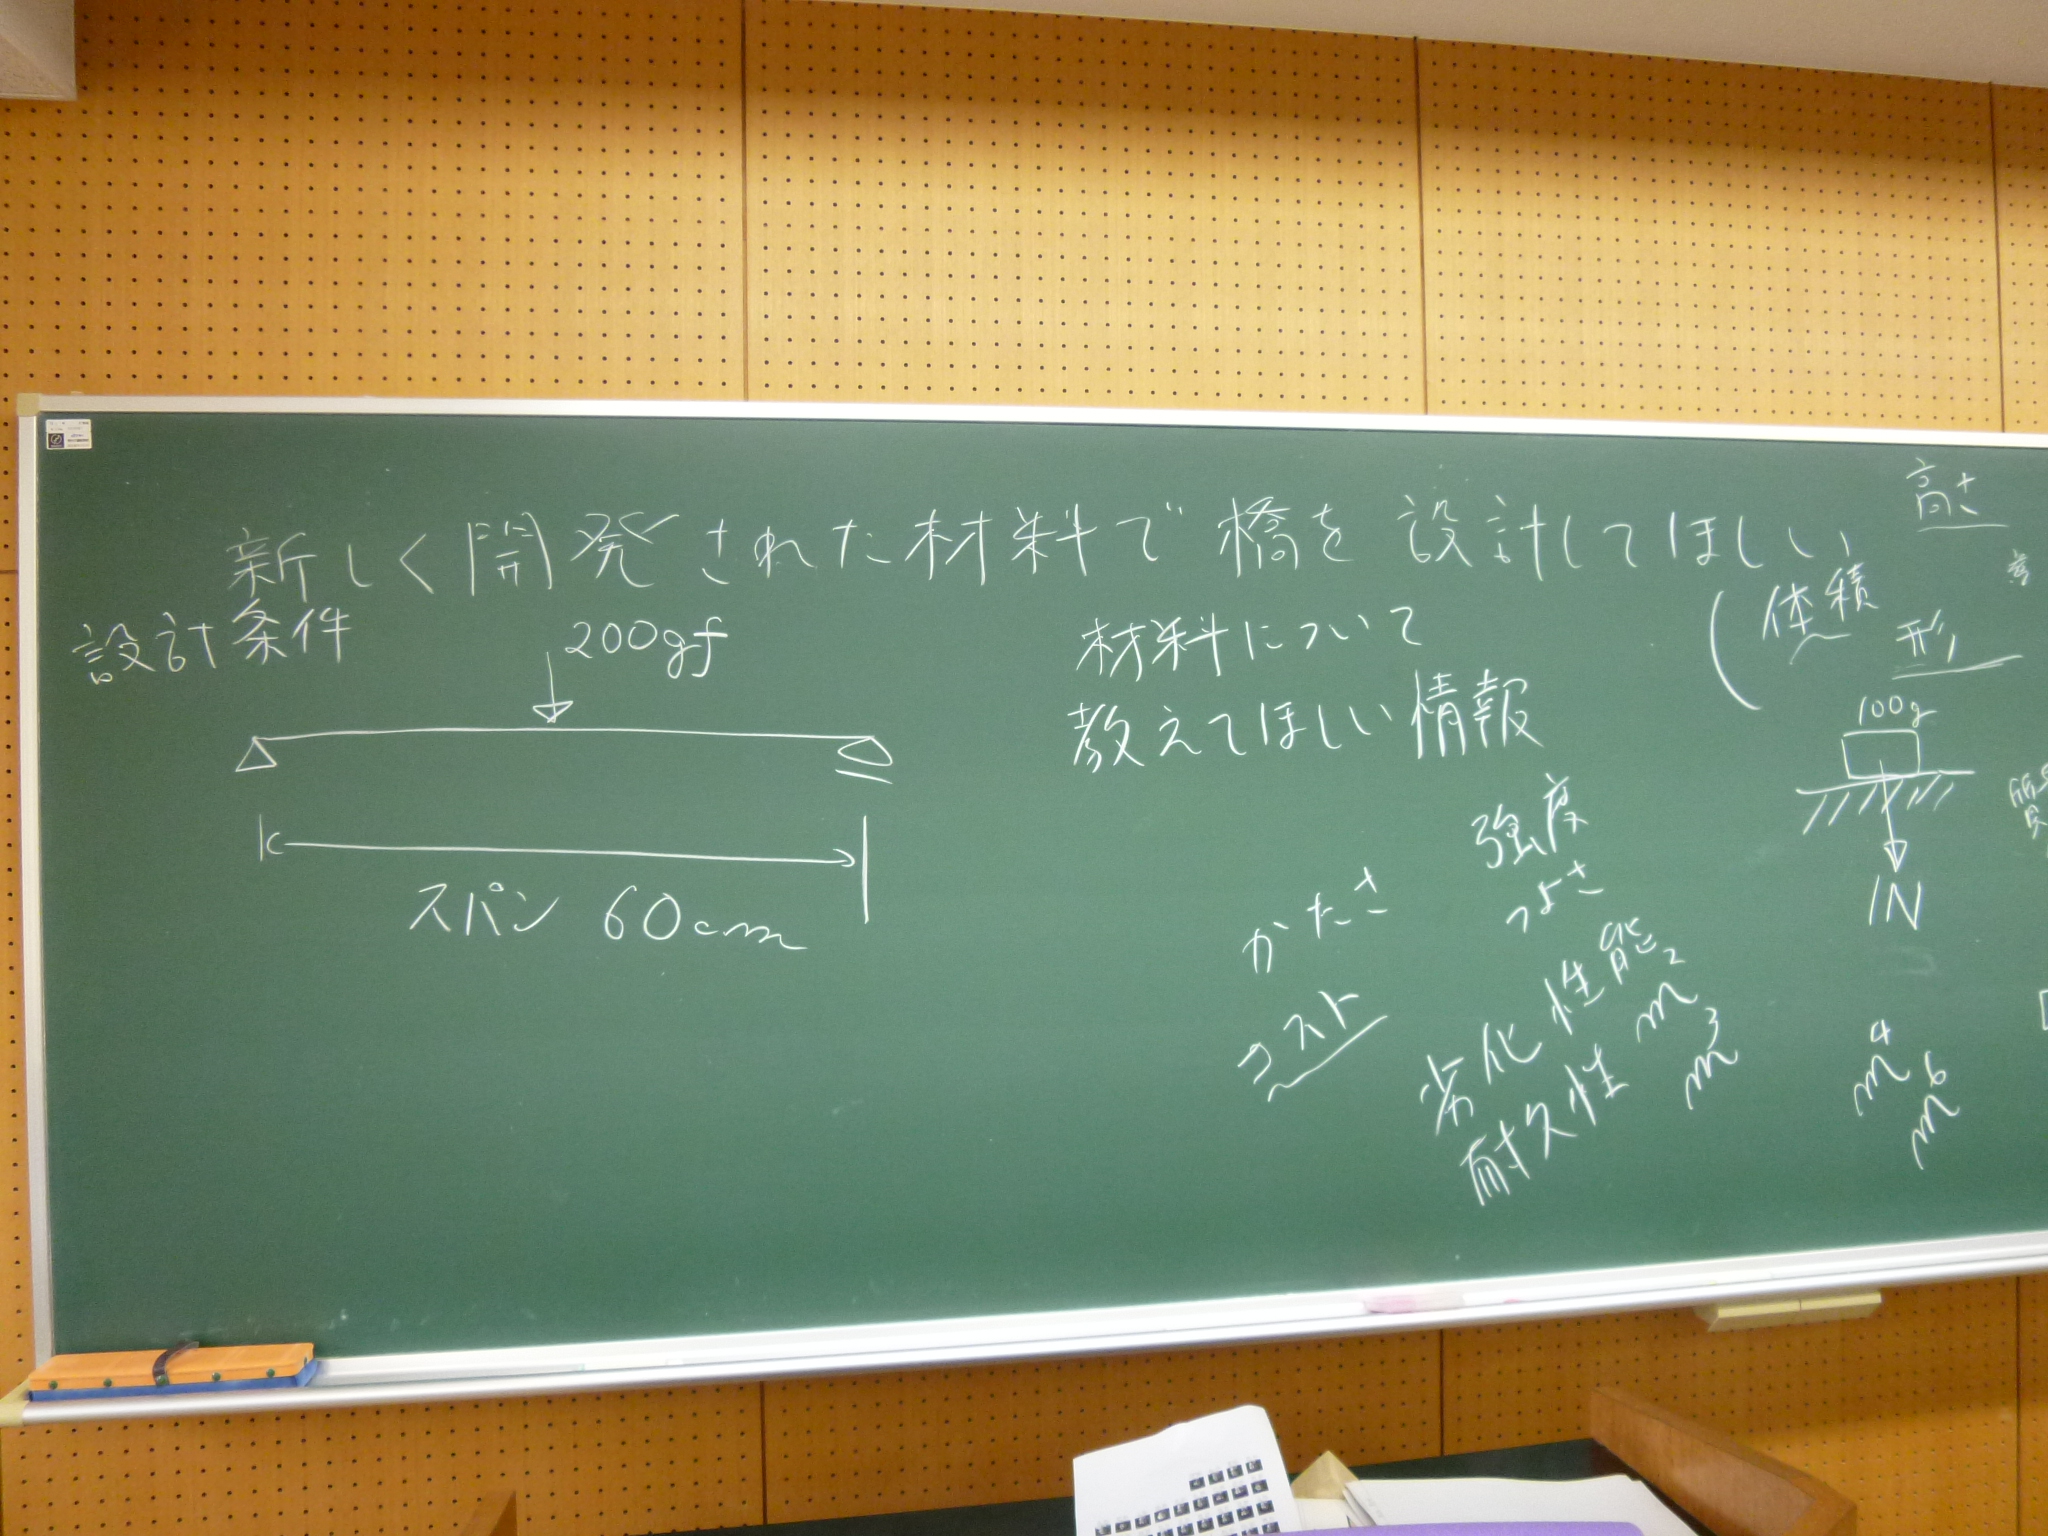 新しく開発された材料で橋を設計してほしい
設計条件
200gf
スパン 60cm
材料について
教えてほしい情報
強度
つよさ
かたさ
コスト
劣化性能
耐久性
m²
m³
高さ
体積
形
100g
1N
m⁴
m⁶